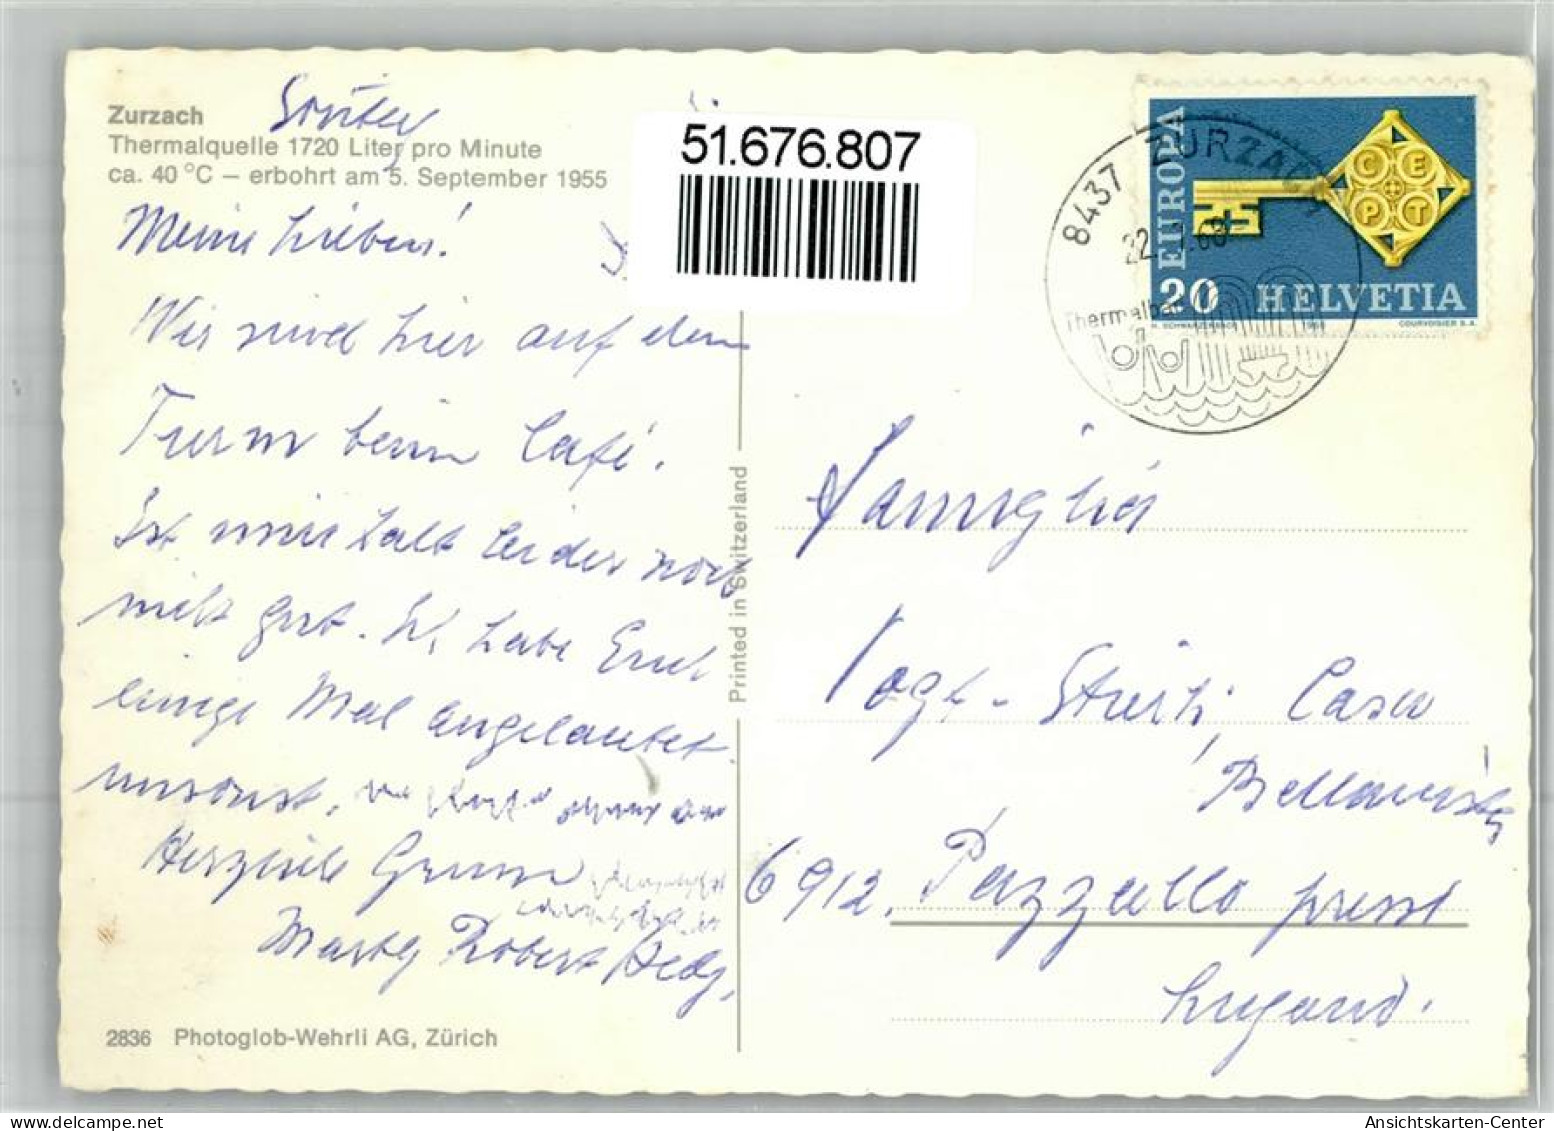 Zurzach
Thermalquelle 1720 Liter pro Minute
ca. 40 °C – erbohrt am 5. September 1955
51.676.807
Meine Lieben!
Wir sind hier auf dem
Turm beim Café.
Ist mir halt leider noch
nicht gut. Habe Euch
einige Mal angelautet
umsonst.
Herzliche Grüsse
Marty Robert Hedy,
2836 Photoglob-Wehrli AG, Zürich
Printed in Switzerland
8437 ZURZACH
Thermalbad
EUROPA
CEPT
20 HELVETIA
COURVOISIER S.A.
Famiglia
Vogt-Sturti, Casa
Bellavista
6912. Pazzallo presso
Lugano.
Ansichtskarten-Center